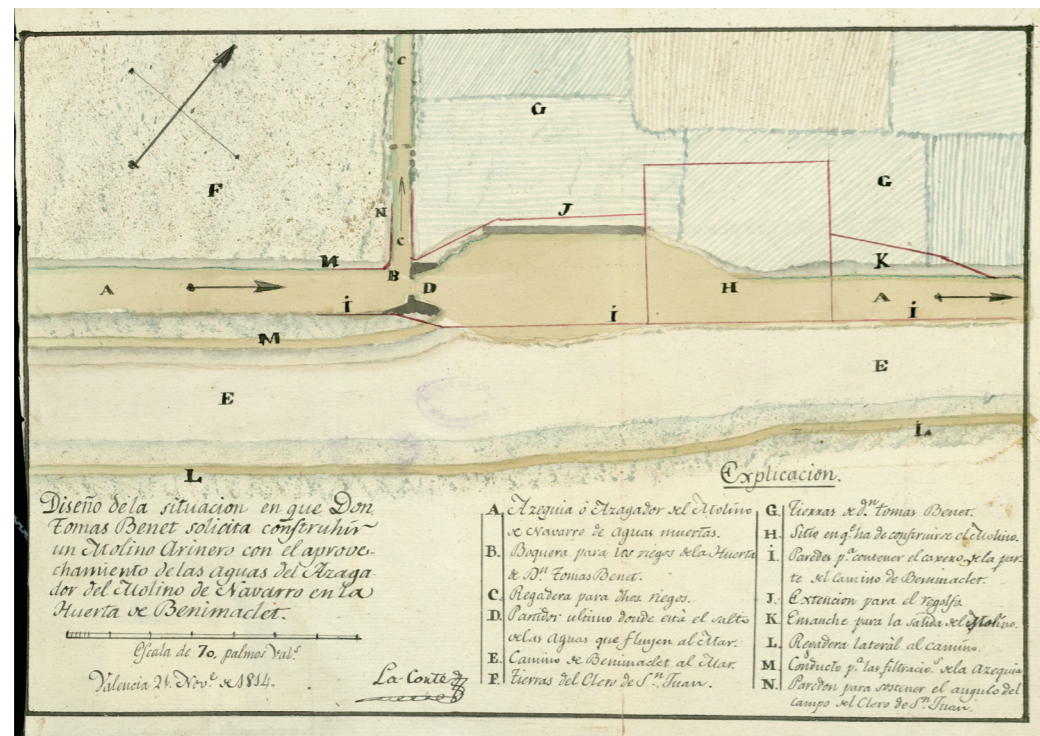 C
G
F
G
J
N
C
M
B
K
A
D
H
A
İ
İ
İ
M
E
E
L
L
Diseño dela situacion en que Don
Tomas Benet solicita construhir
un Molino Arinero con el aprove-
chamiento de las aguas del Azaga
dor del Molino de Navarro en la
Huerta de Benimaclet.
Escala de 70, palmos Val.s
Valencia 21. Nov.e de 1814.
La Corte
Explicacion.
A. Azequia ó Azagador del Molino
de Navarro de aguas muertas.
B. Boquera para los riegos dela Huerta
de D.n Tomas Benet.
C. Regadera para dhos riegos.
D. Partidor ultimo donde está el salto
delas Aguas que fluyen al Mar.
E. Camino de Benimaclet al Mar.
F. Tierras del Clero de S.n Juan.
G. Tierras de d.n Tomas Benet.
H. Sitio en q.e ha de construirse el Molino.
İ. Paredes p.a contener el caxero, dela par-
te del Camino de Benimaclet.
J. Extencion para el regolfo.
K. Ensanche para la salida del Molino.
L. Regadera lateral al camino.
M. Conducto p.a las filtracio.s dela azequia
N. Paredon para sostener el angulo del
campo del Clero de S.n Juan.